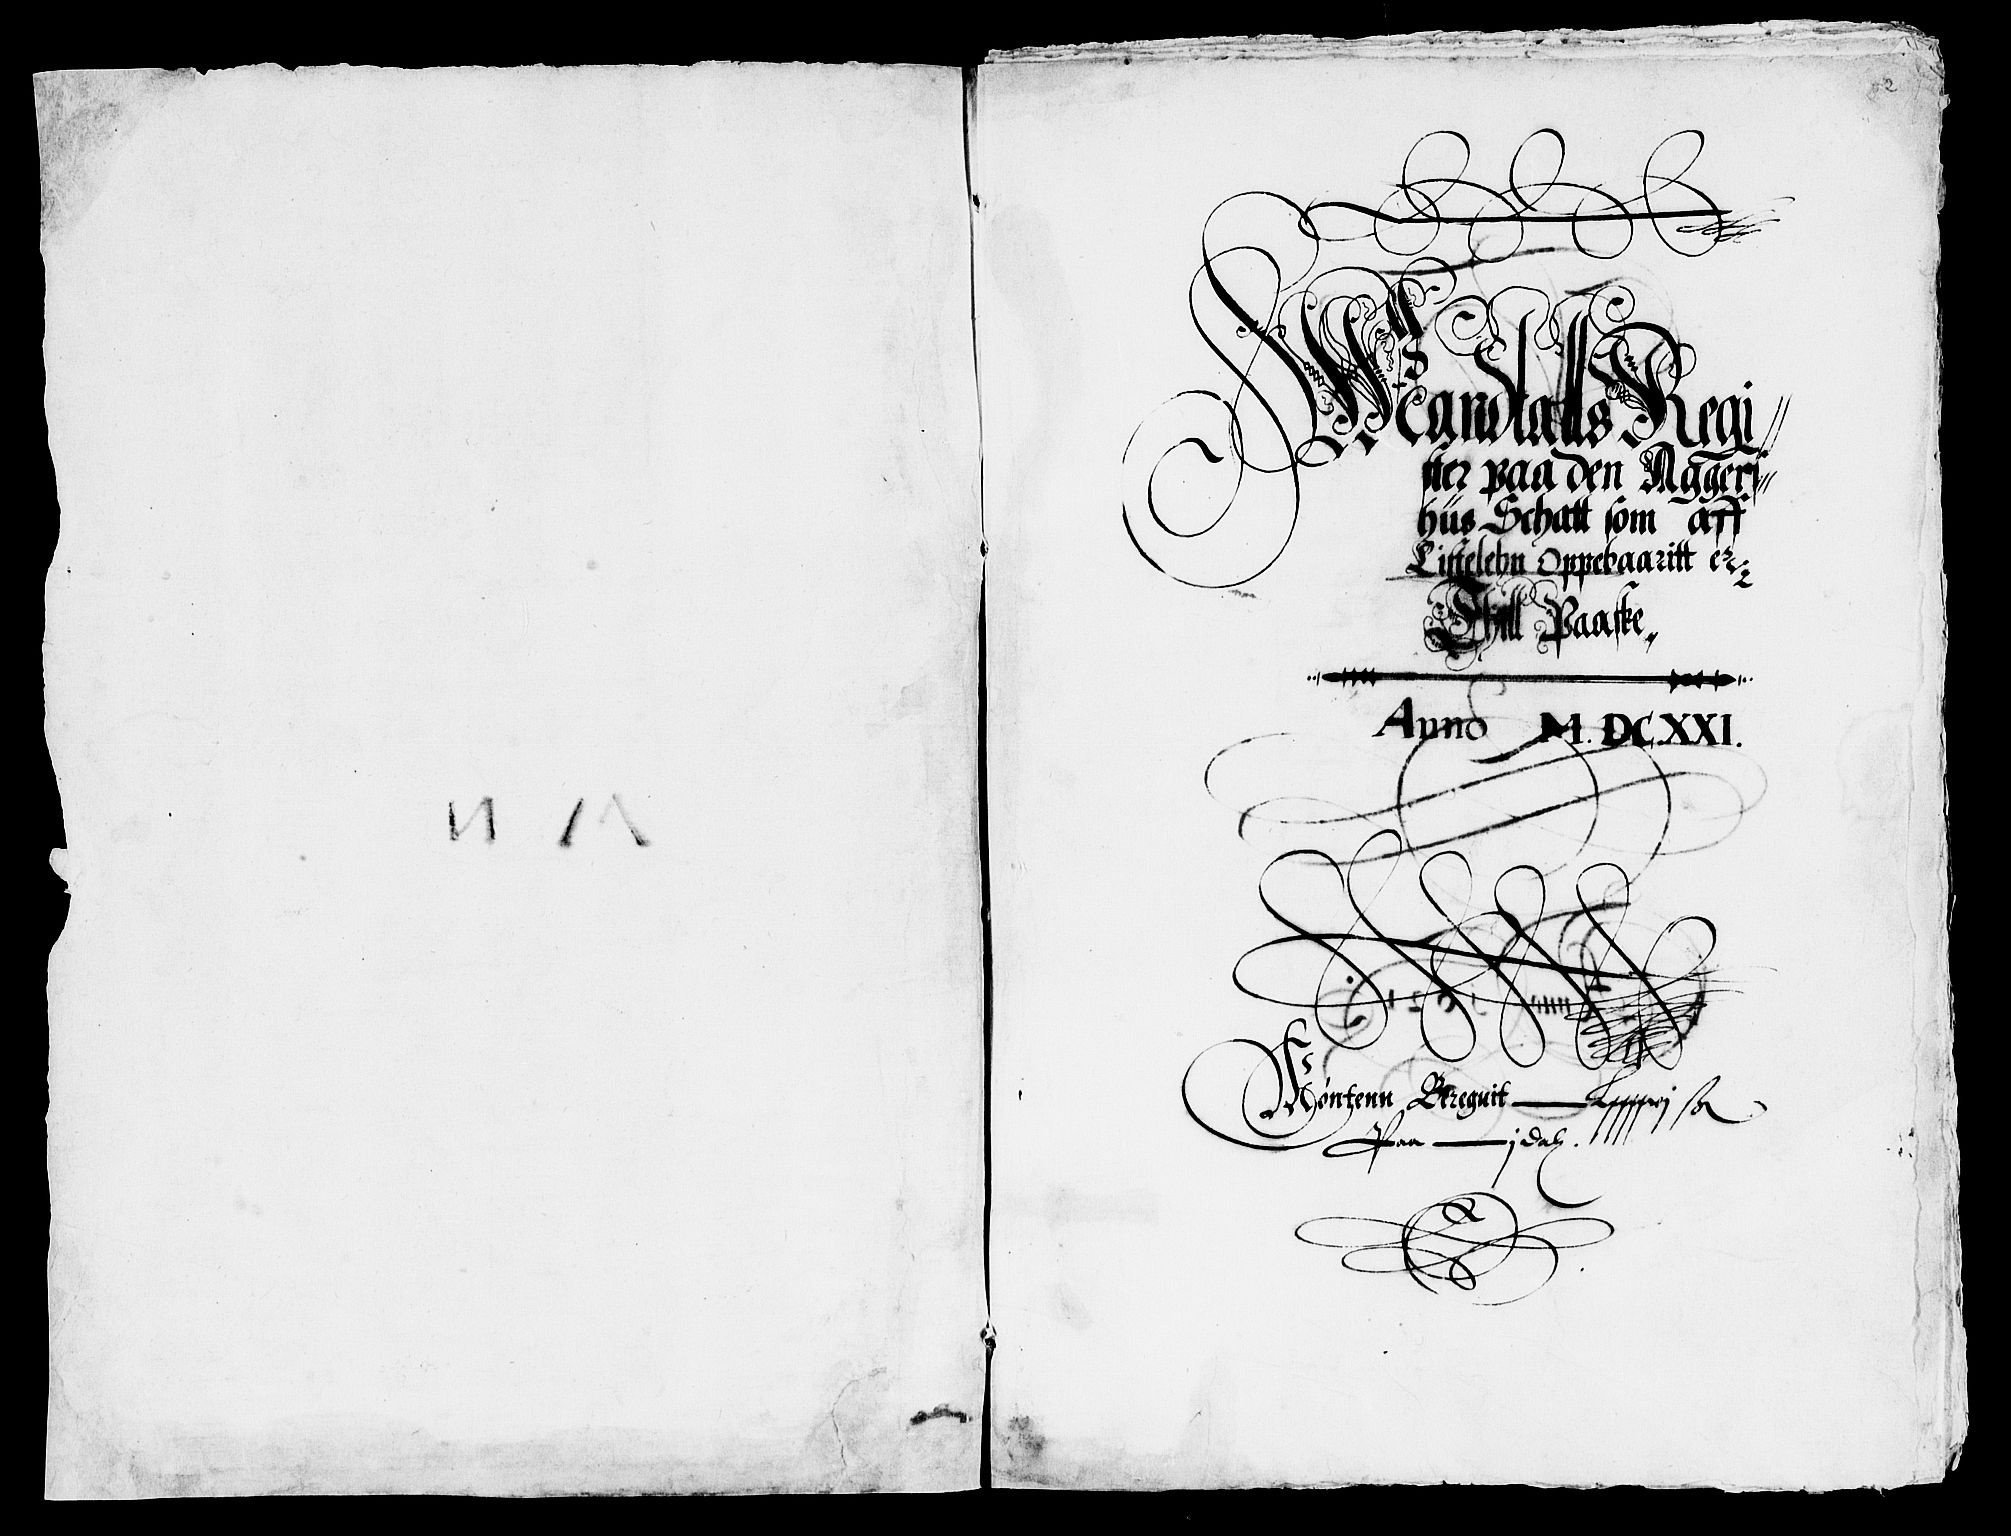 2
Mandtalls Regi
ster paa den Aggers
huus Schatt som aff
Listelehn Oppebaaritt er
Thill Paaske
Anno M.DCXXI.
Møntenn Bereguit
Paa j dal.